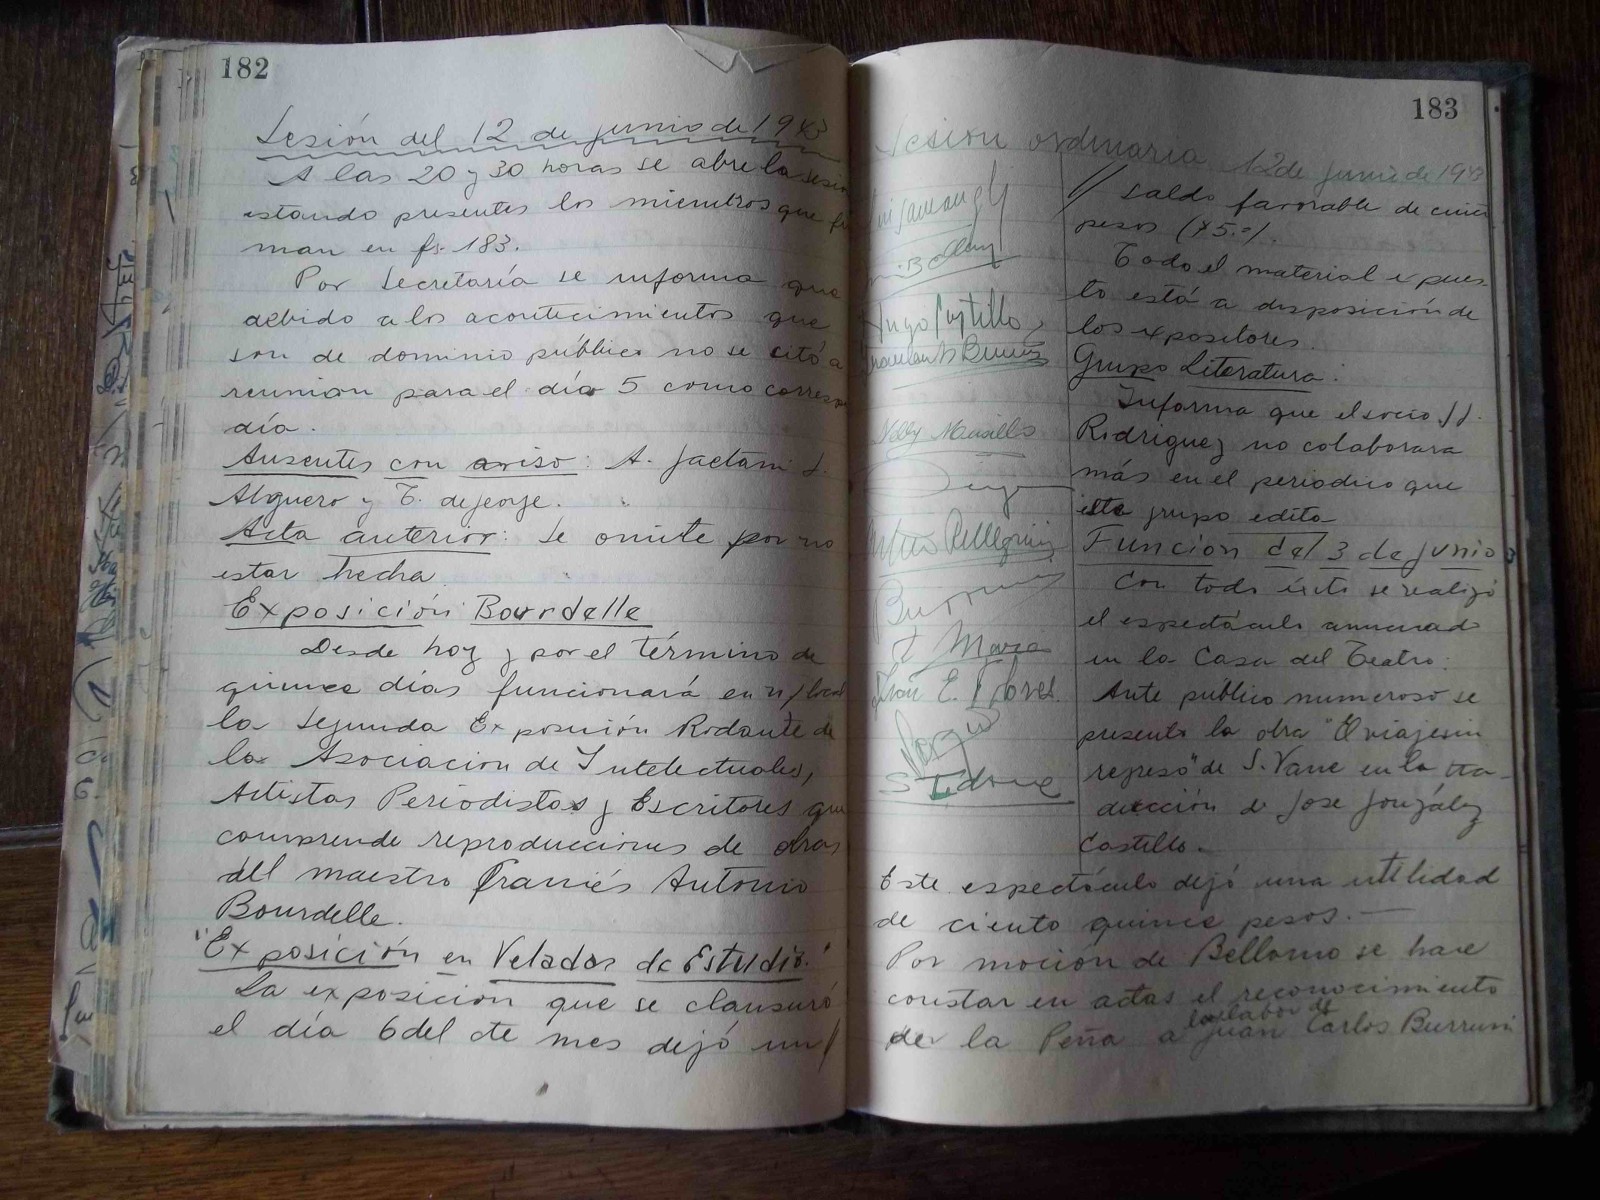 182
Sesión del 12 de junio de 1943
A las 20 y 30 horas se abre la sesión
estando presentes los miembros que fir
man en fs. 183.
Por Secretaría se informa que
debido a los acontecimientos que
son de dominio público no se citó a
reunión para el día 5 como correspon
día.
Ausentes con aviso: A. Gaetani J.
Alguero y T. de Jeorje.
Acta anterior: Se omite por no
estar hecha
Exposición Bourdelle
Desde hoy y por el término de
quince días funcionará en n/ local
la segunda Exposición Rodante de
la Asociacion de Intelectuales,
Artistas Periodistas y Escritores que
comprende reproducciones de obras
del maestro francés Antonio
Bourdelle.
"Exposición en Veladas de Estudio."
La exposicion que se clausuró
el día 6 del cte mes dejó un/
183
Sesion ordinaria 12 de junio de 1943
Hugo Castillo
Nelly Mansilla
Pellegrini
J Marza
Juan E. Flores.
S Tedone
// saldo favorable de cinco
pesos ($5.-).
Todo el material expues
to está a disposición de
los expositores.
Grupo Literatura:
Informa que el socio JJ.
Rodriguez no colaborara
más en el periodico que
este grupo edita
Funcion del 3 de junio
Con todo éxito se realizó
el espectáculo anunciado
en la Casa del Teatro:
Ante público numeroso se
presento la obra "El viaje sin
regreso" de S. Vane en la tra-
ducción de Jose González
Castillo.-
Este espectáculo dejó una utilidad
de ciento quince pesos.-
Por moción de Bellomo se hace
constar en actas el reconocimiento
de la Peña a la labor de Juan Carlos Burruni